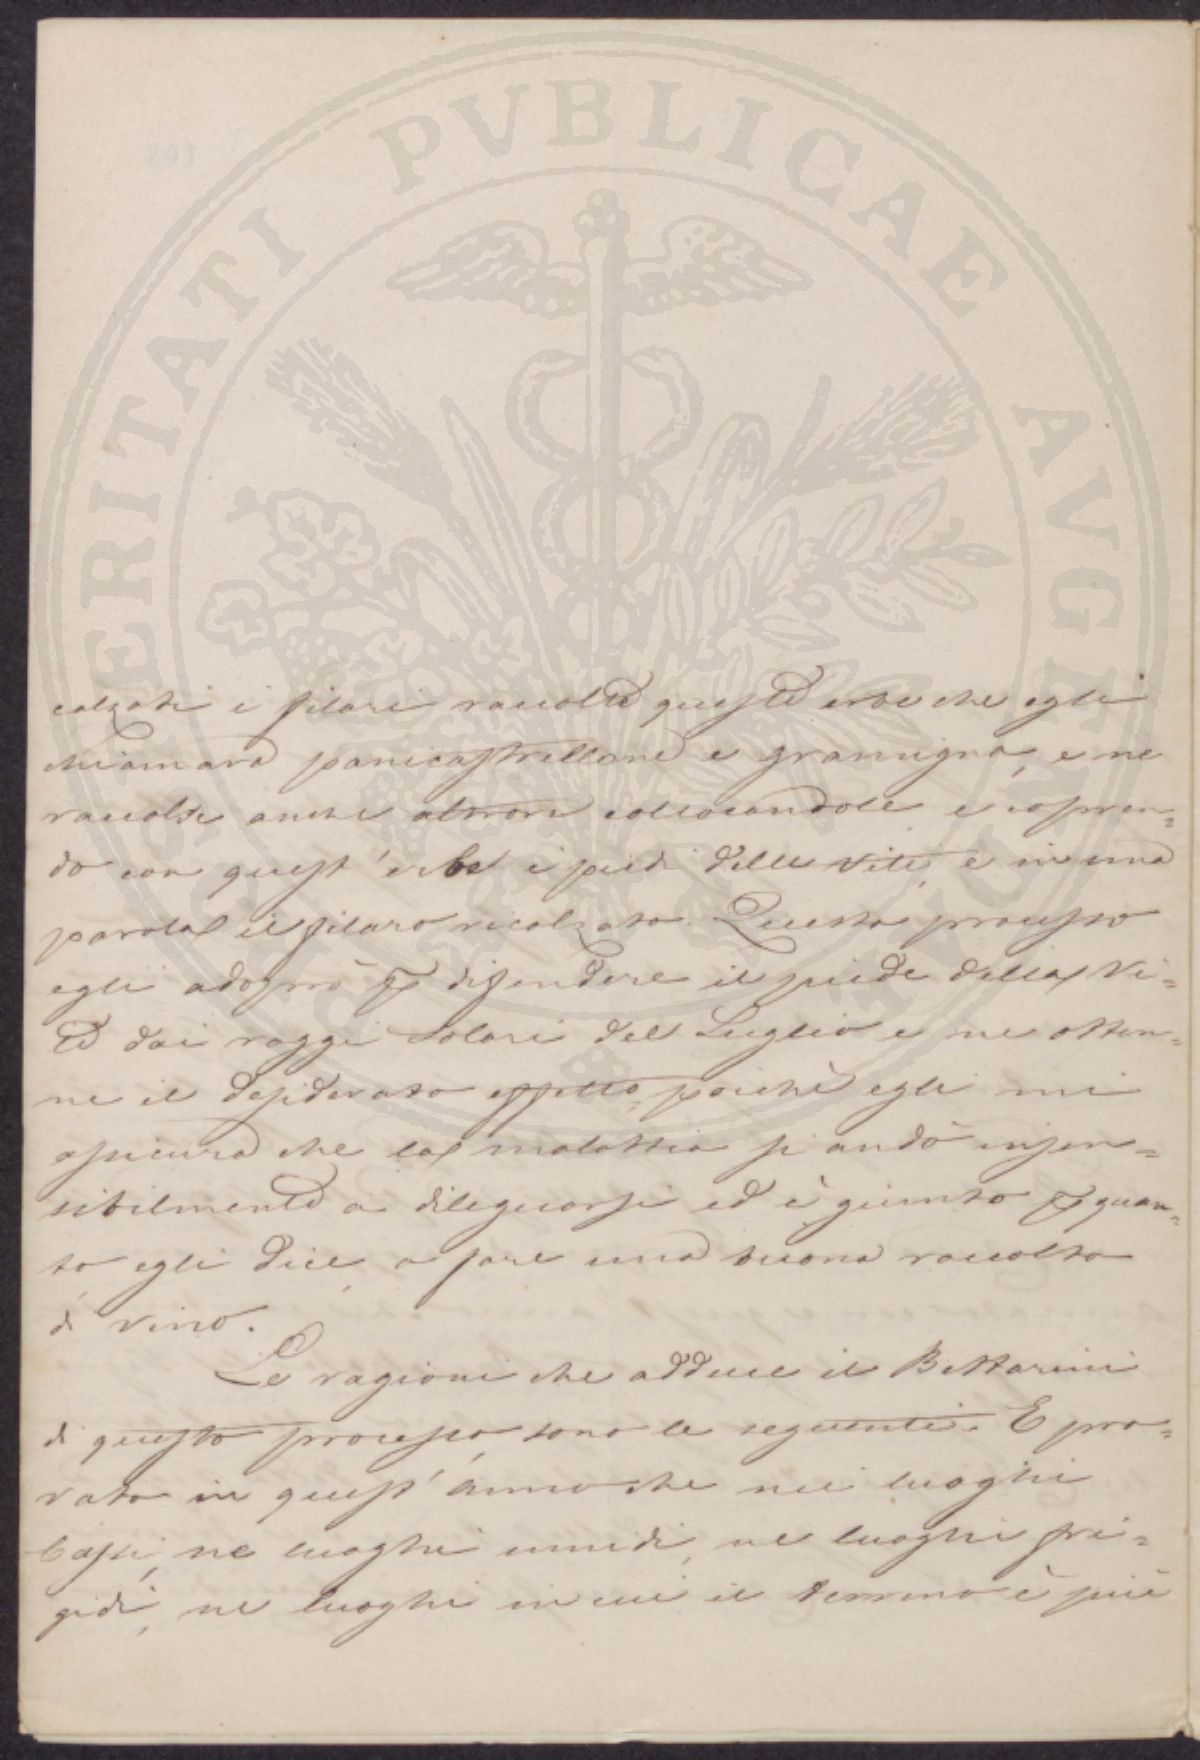 PROSPERITATI PVBLICAE AVGENDAE
calzati i filari raccolte queste erbe che egli
chiamava panicastrellone e gramigna, e ne
raccolse anche altrove collocandole e copren=
do con quest'erbe i piedi delle viti, e in una
parola il filare ricalzato. Questo processo
egli adoprò per difendere il piede della Vi=
te dai raggi solari del Luglio e ne otten=
ne il desiderato effetto, poichè egli mi
assicura che la malattia si andò insen=
sibilmente a dileguarsi ed è giunto per quan=
to egli dice, a fare una buona raccolta
di vino.
Le ragioni che adduce il Bettarini
di questo processo, sono le seguenti. E pro=
vato in quest'anno che nei luoghi
bassi, ne luoghi umidi, ne luoghi fri=
gidi, ne luoghi in cui il terreno è più